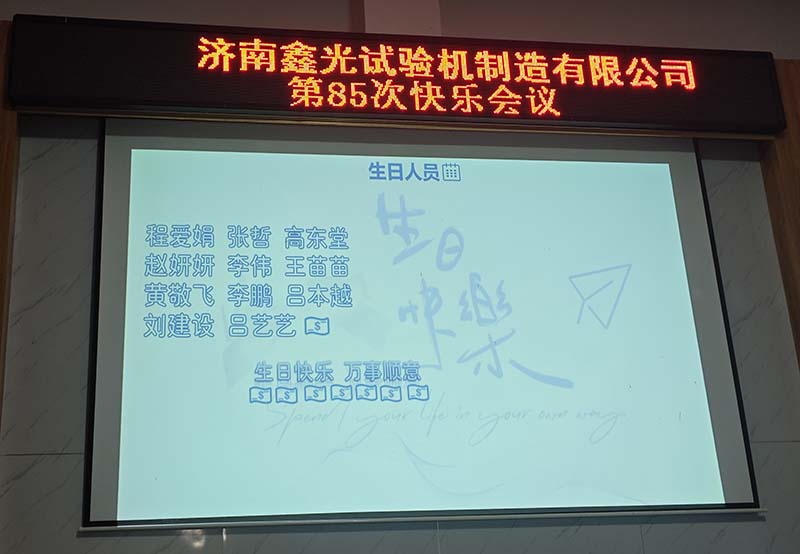 济南鑫光试验机制造有限公司
第85次快乐会议
生日人员
程爱娟 张哲 高东堂
赵妍妍 李伟 王苗苗
黄敬飞 李鹏 吕本越
刘建设 吕艺艺
生日快乐 万事顺意
生日
快樂
Spend your life in your own way